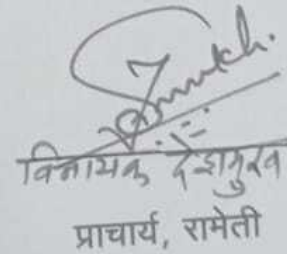 विनायक देशमुख
प्राचार्य, रामेती